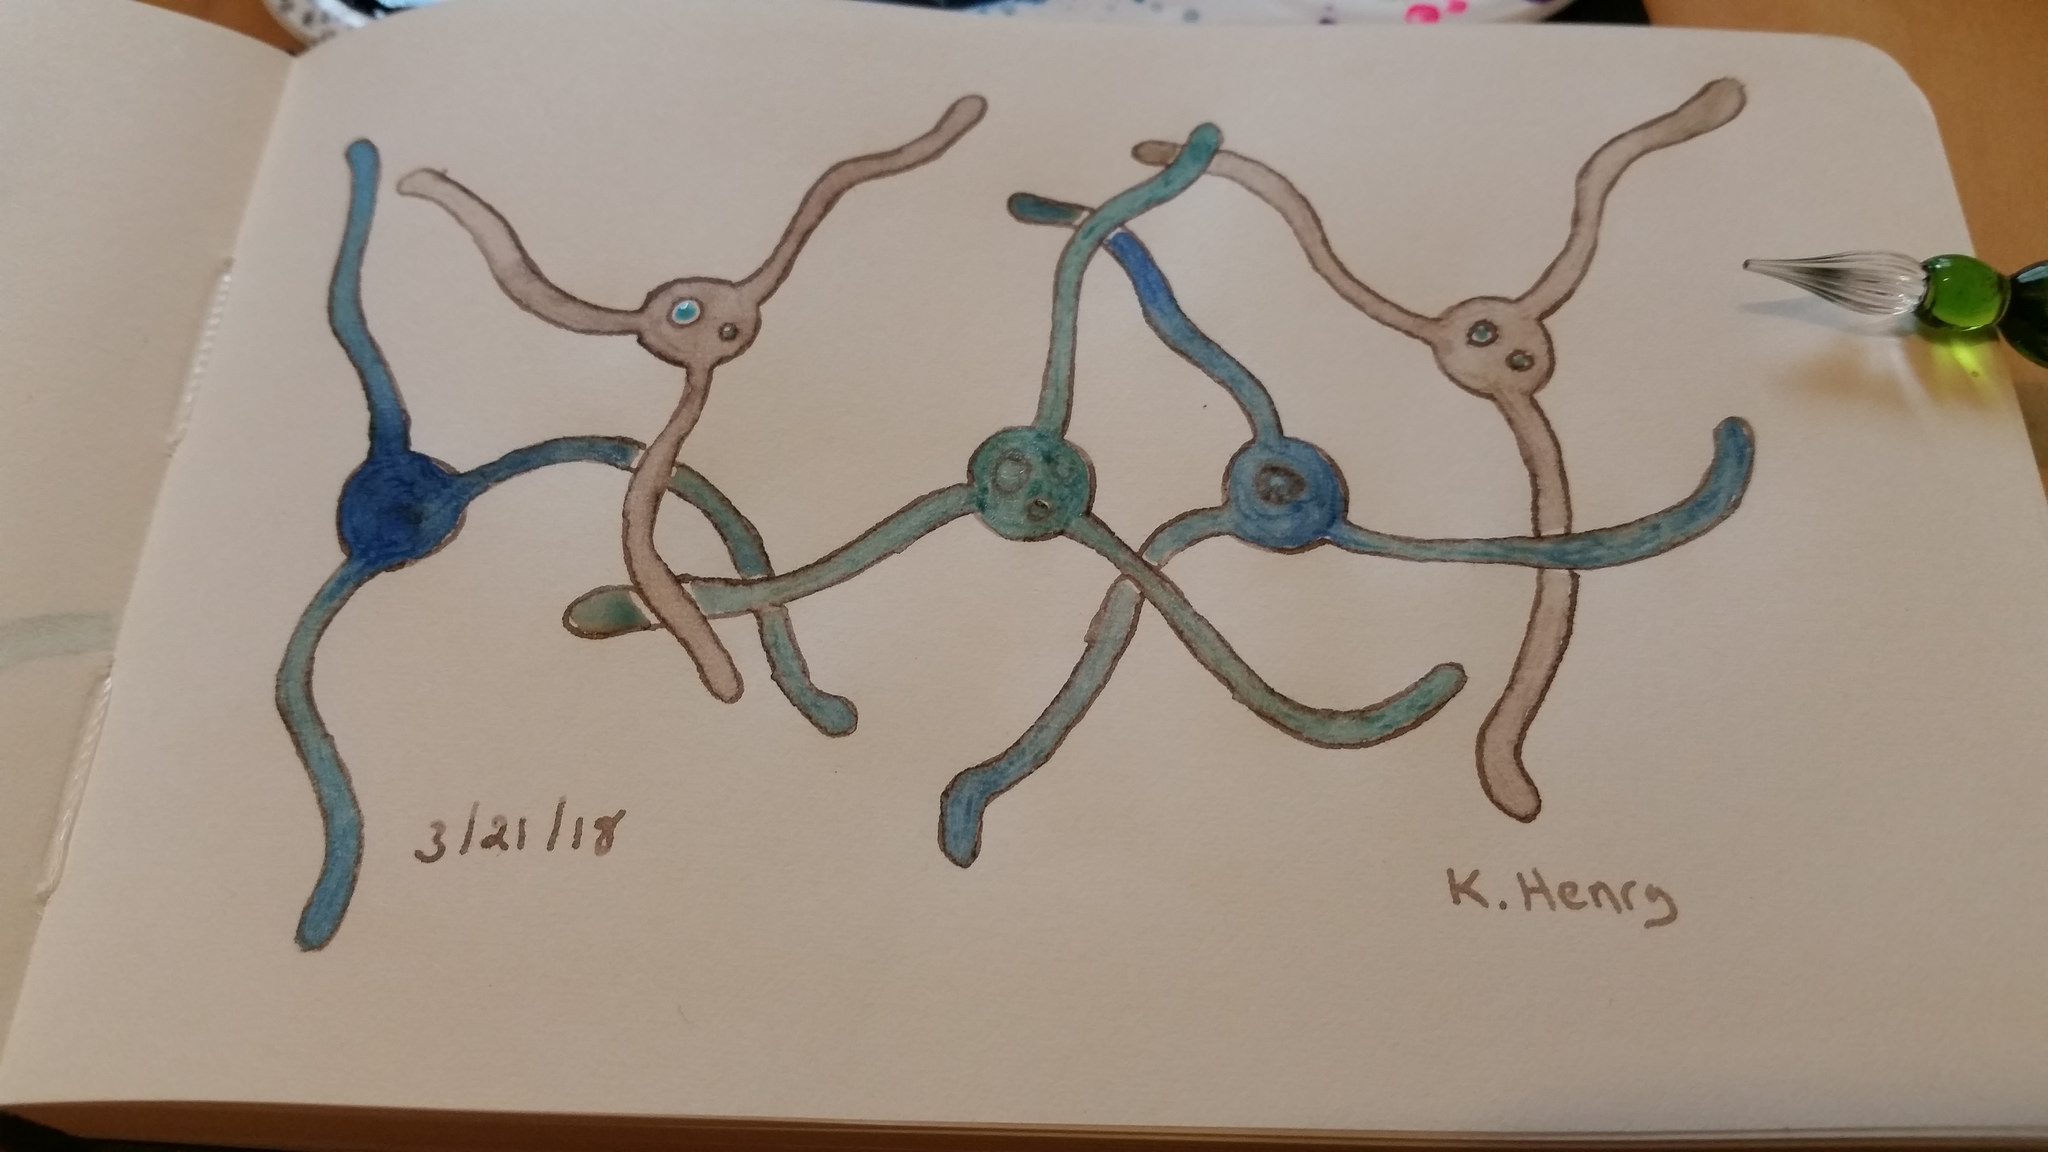 3/21/18
K. Henry